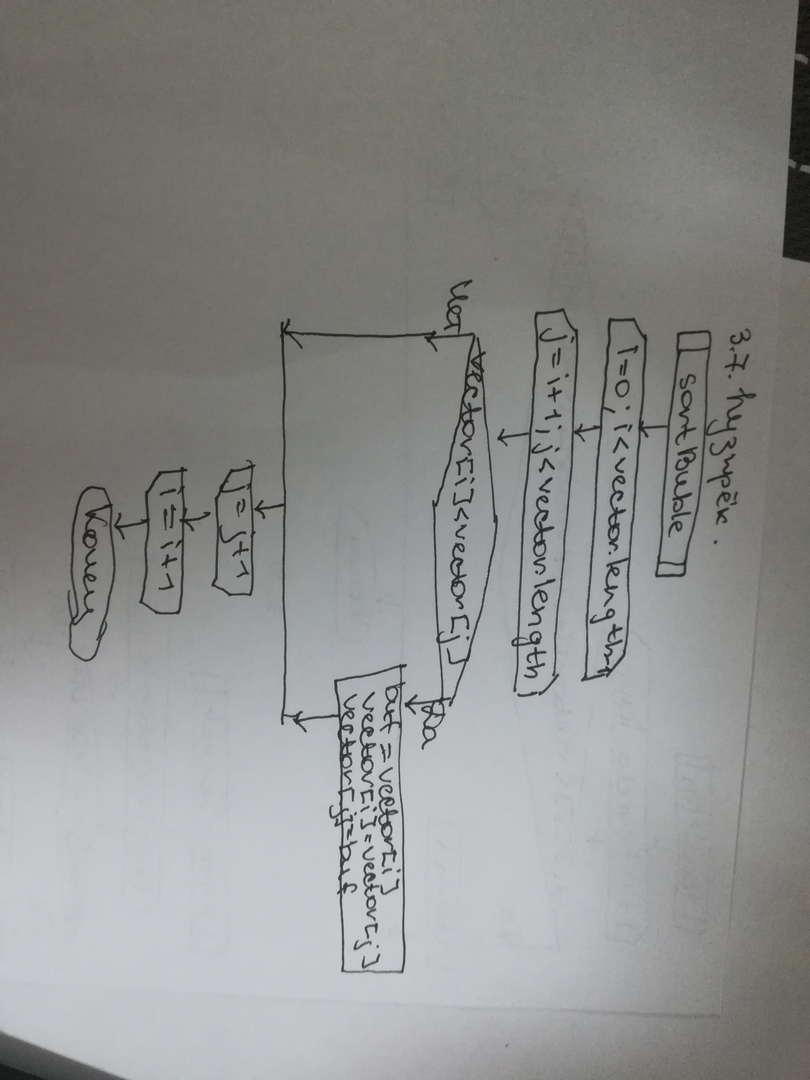 3.7. Пузырёк.
sortBuble
i=0; i<vector.length-1
j=i+1; j<vector.length
vector[i]<vector[j]
Нет
Да
buf = vector[i]
vector[i]=vector[j]
vector[j]=buf
j = j+1
i = i+1
Конец